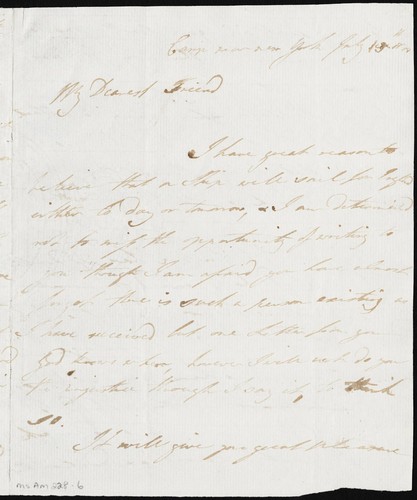 Camp near New York July 13th
My Dearest Friend
I have great reason to
believe that a Ship will sail for
either to day or tomorrow, & I am determined
not to miss the opportunity of writing to
you though I am afraid you have almost
forgot there is such a person existing as
I have received but one Letter from you
God knows when, however I will not do you
the injustice though I say it, to think
so.
It will give you great pleasure
MS Am 228.6